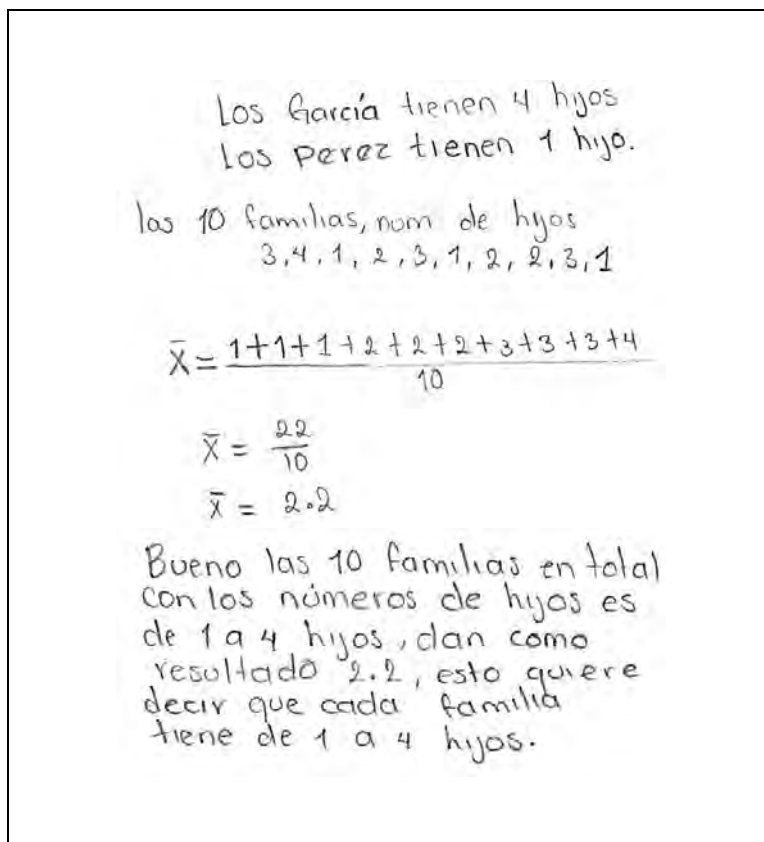 Los García tienen 4 hijos
Los perez tienen 1 hijo.
las 10 familias, num de hijos
3, 4, 1, 2, 3, 1, 2, 2, 3, 1
X̄ = 1+1+1+2+2+2+3+3+3+4
10
X̄ = 22
10
X̄ = 2.2
Bueno las 10 familias en total
con los números de hijos es
de 1 a 4 hijos, dan como
resultado 2.2, esto quiere
decir que cada familia
tiene de 1 a 4 hijos.